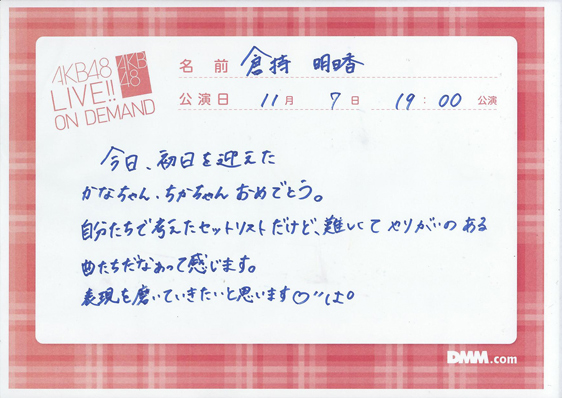 AKB48
LIVE!!
ON DEMAND
AKB
48
名前 倉持 明日香
公演日 11月 7日 19:00 公演
今日、初日を迎えた
かなちゃん、ちかちゃん おめでとう。
自分たちで考えたセットリストだけど、難しくて やりがいの ある
曲たちだなぁって感じます。
表現を磨いていきたいと思います
DMM.com